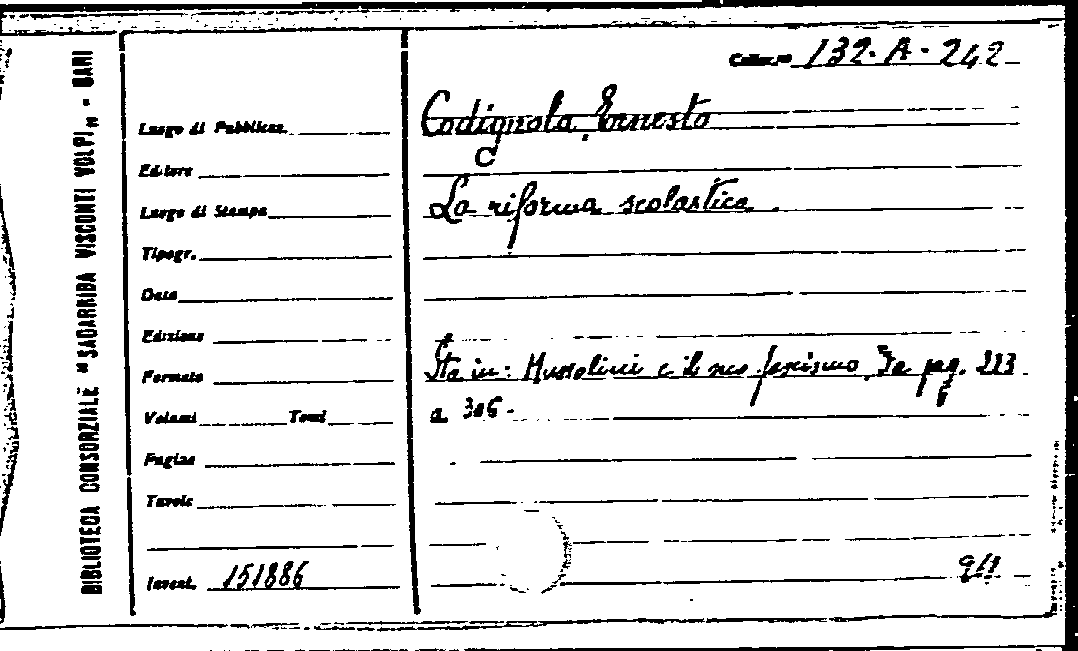 BIBLIOTECA CONSORZIALE "SAGARRIGA VISCONTI VOLPI" - BARI
Collocaz. 132-A-242
Luogo di Pubblicaz.
Codignola, Ernesto
Editore
C
Luogo di Stampa
La riforma scolastica
Tipogr.
Data
Edizione
Formato
Sta in: Mussolini e il suo fascismo. Da pag. 223
Volumi Tomi
a 306-
Pagine
Tavole
Invent. 151886